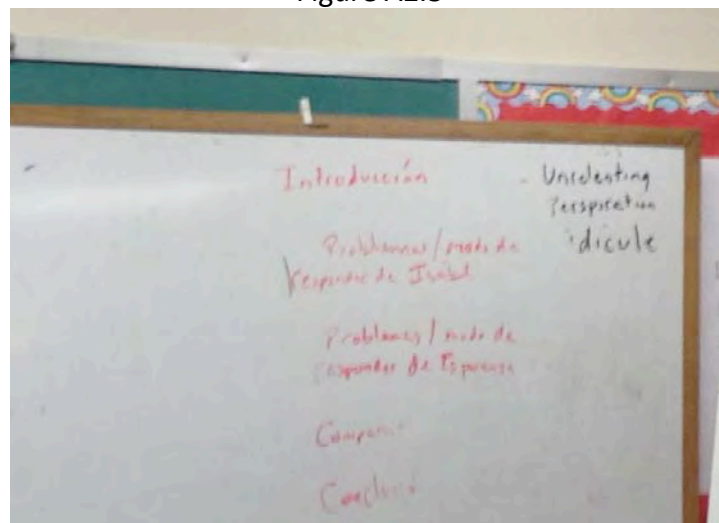 Introducción
Problemas/modo de
responder de Isabel
Problemas/modo de
responder de Esperanza
Unrelenting
Perspiration
idicule